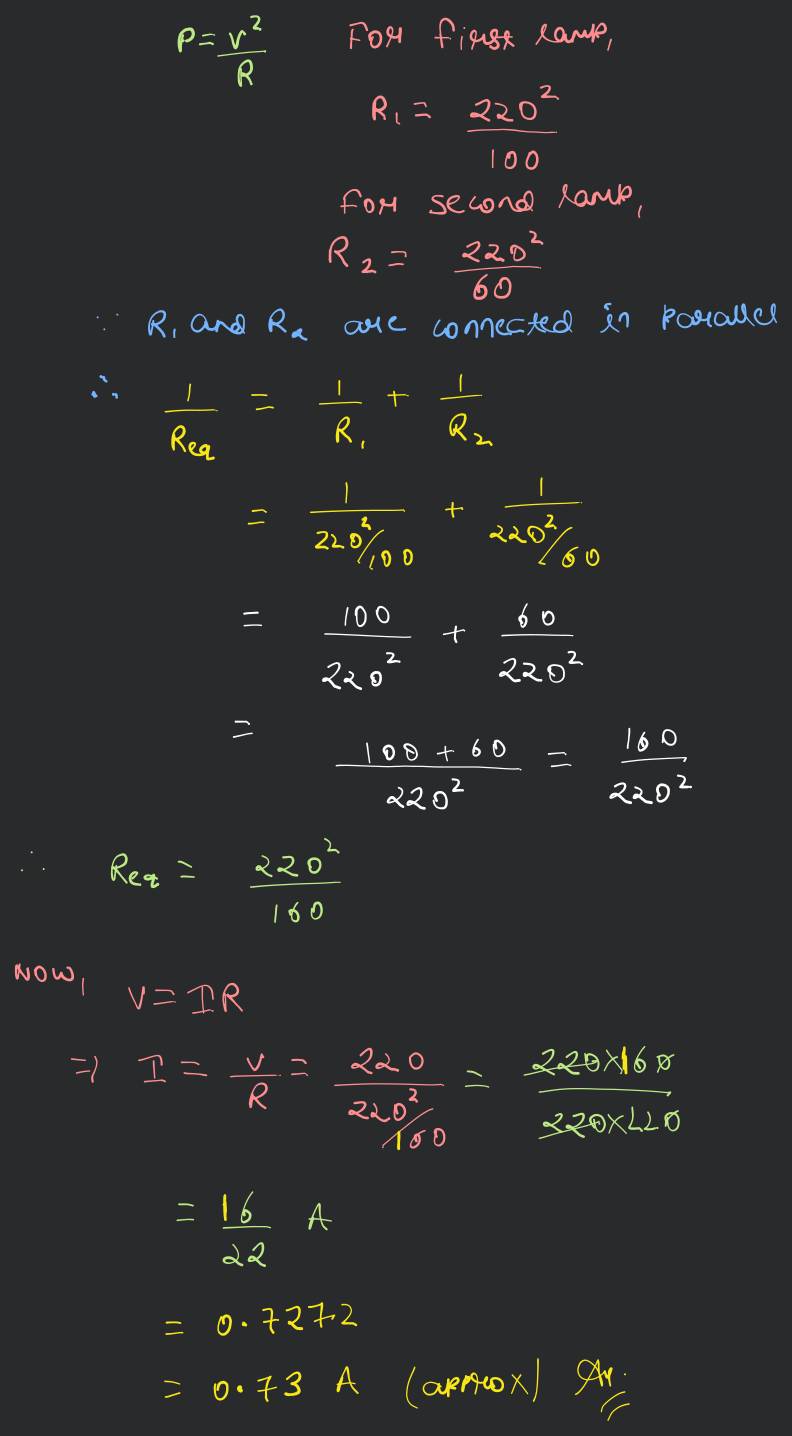 P = V²/R For first lamp,
R₁ = 220²/100
For second lamp,
R₂ = 220²/60
∵ R₁ and R₂ are connected in parallel
∴ 1/Req = 1/R₁ + 1/R₂
= 1/(220²/100) + 1/(220²/60)
= 100/220² + 60/220²
= (100 + 60)/220² = 160/220²
∴ Req = 220²/160
NOW, V = IR
⇒ I = V/R = 220/(220²/160) = (220×160)/(220×220)
= 16/22 A
= 0.7272
= 0.73 A (approx) Ay.